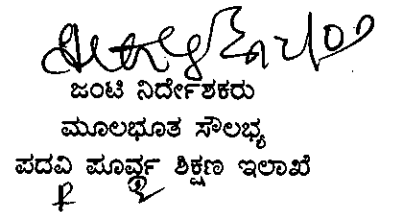 ಜಂಟಿ ನಿರ್ದೇಶಕರು
ಮೂಲಭೂತ ಸೌಲಭ್ಯ
ಪದವಿ ಪೂರ್ವ ಶಿಕ್ಷಣ ಇಲಾಖೆ